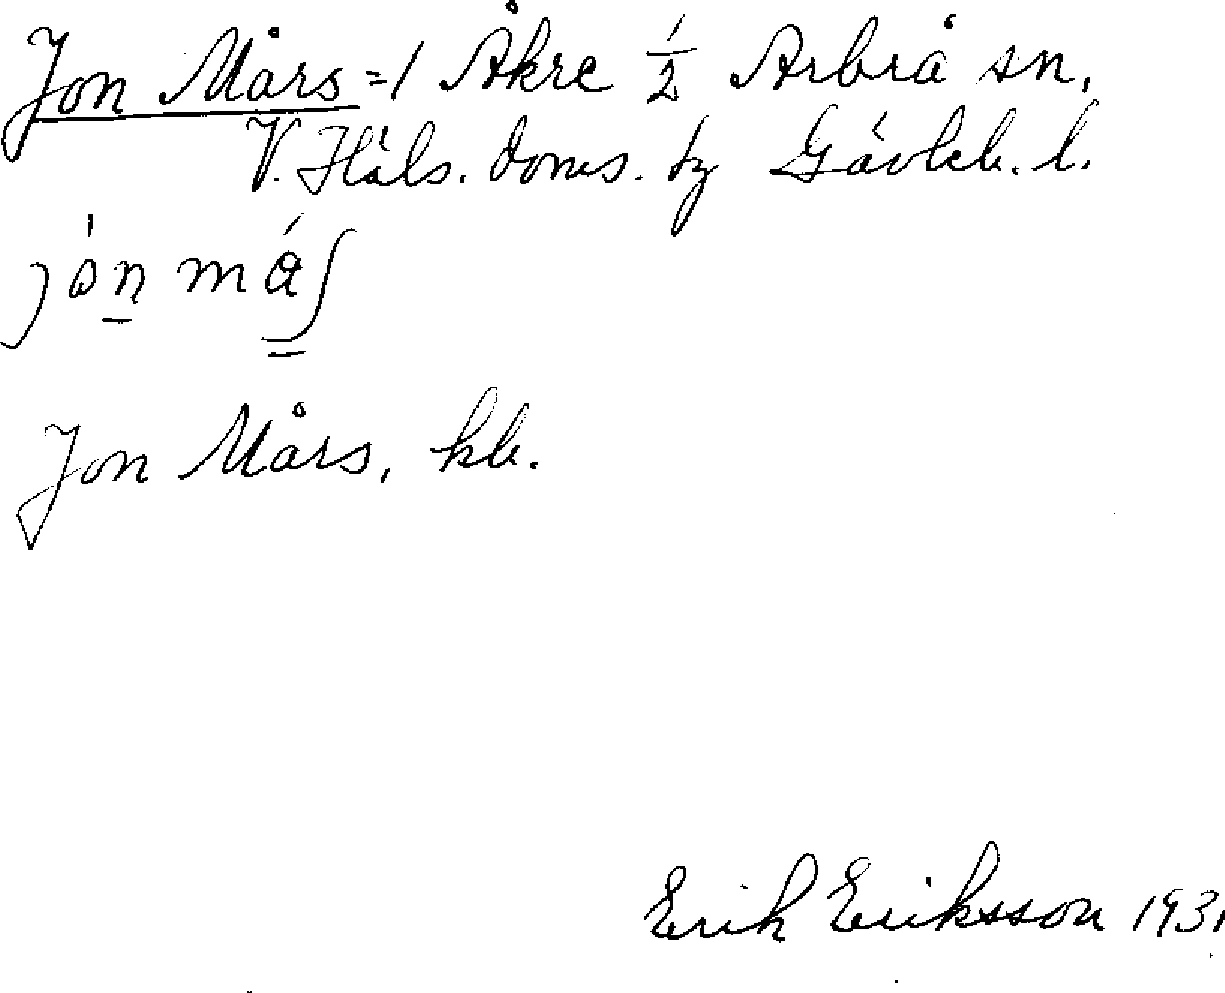 Jon Mårs = 1 Åkre 1/2 Arbrå sn,
V. Häls. doms. tg Gävleb. l.
jón må̀ʃ
Jon Mårs, kb.
Erik Eriksson 1931